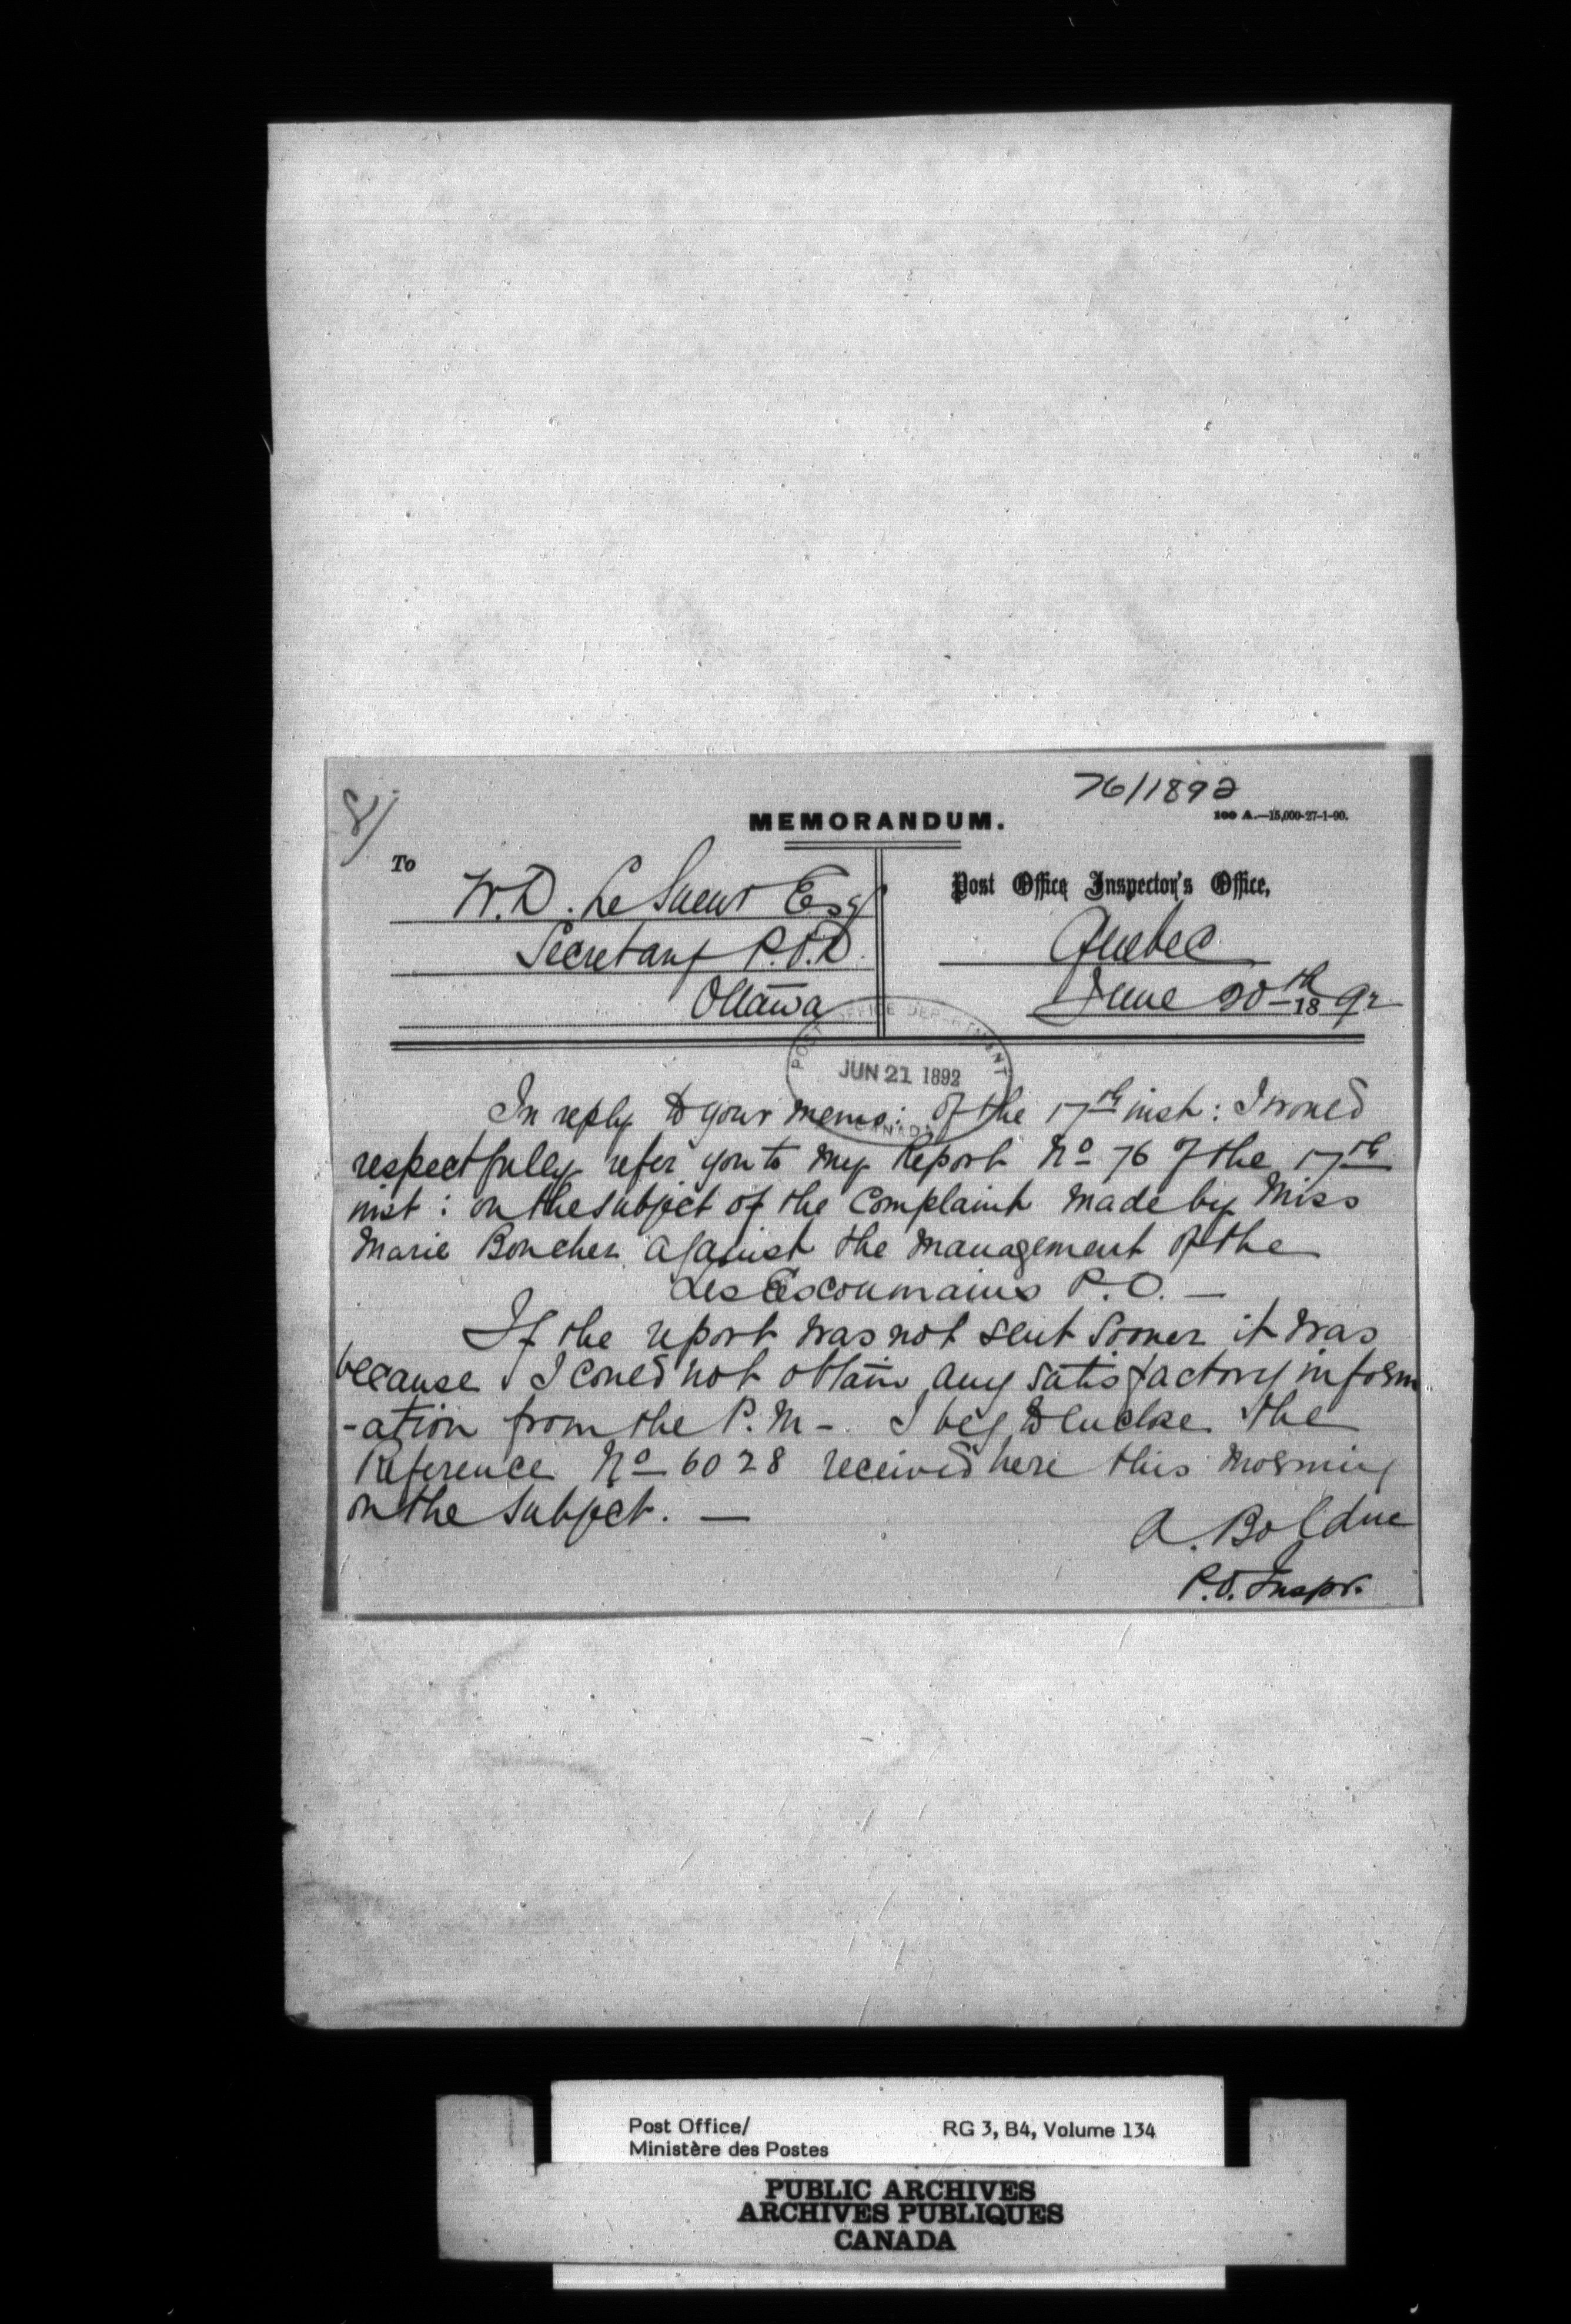 8/
76/1892
MEMORANDUM.
100 A.—15,000-27-1-90.
To
W. D. LeSueur Esq
Secretary P.O.D.
Ottawa
Post Office Inspector's Office,
Quebec
June 20th 1892
POST OFFICE DEPARTMENT
JUN 21 1892
CANADA
In reply to your memo: of the 17th inst: I would
respectfully refer you to my Report No 76 of the 17th
inst: on the subject of the Complaint made by Miss
Marie Boucher against the management of the
Les Escoumains P.O. —
If the report was not sent sooner it was
because I could not obtain any satisfactory inform
-ation from the P.M-. I beg to enclose the
Reference No 6028 received here this morning
on the subject. —
A. Bolduc
P.O. Inspr.
Post Office/
Ministère des Postes
RG 3, B4, Volume 134
PUBLIC ARCHIVES
ARCHIVES PUBLIQUES
CANADA